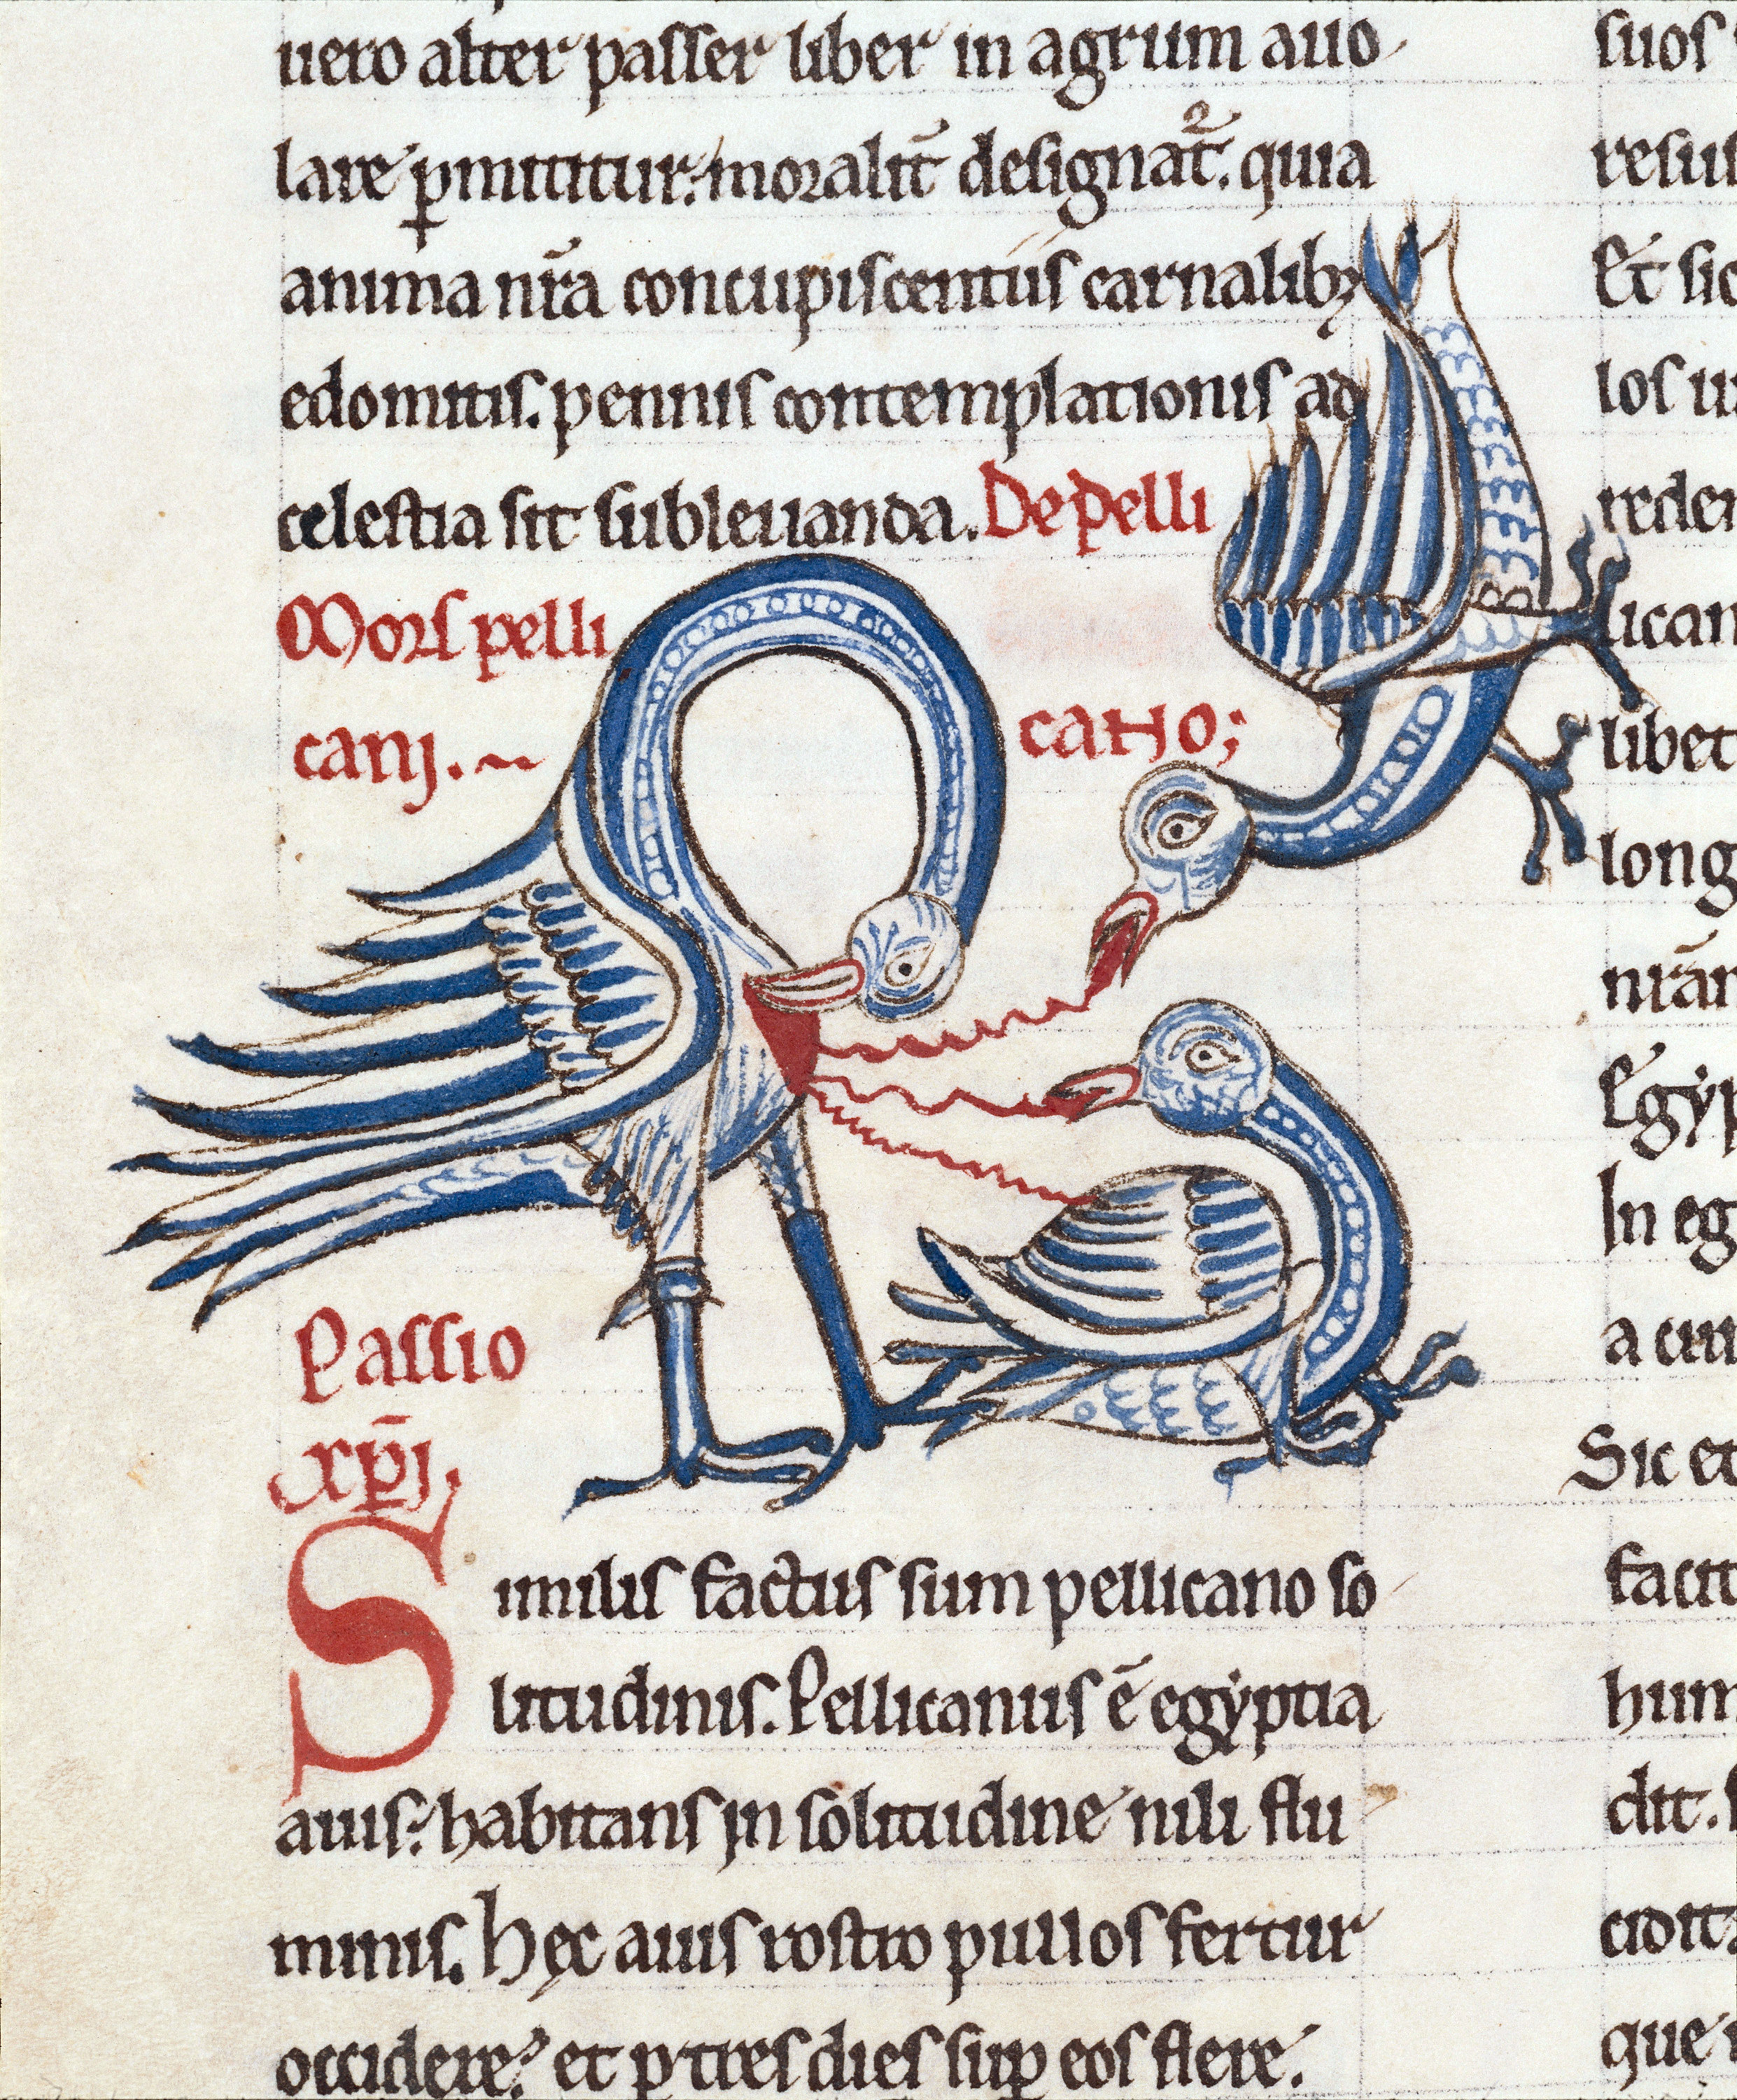 uero alter passer liber in agrum auo
lare p̱mittitur: moralit̄ designat̄². quia
anima nr̄a concupiscentiis carnalibꝫ
edomitis. pennis contemplationis ad
celestia sit subleuanda. De pelli
cano;
Mors pelli
canj.~
Passio
xp̄j.
Similis factus sum pellicano so
litudinis. Pellicanus ē egyptia
auis: habitans jn solitudine nili flu
minis. Hęc auis rostro pullos fertur
occidere: et ꝑ tres dies suꝑ eos flere.
suos
resus
Et sic
los
reder
lican
libet
long
nr̄ar
Egyp
In eg
a cui
Sic et
facit
hum
dit. s
cidit
que